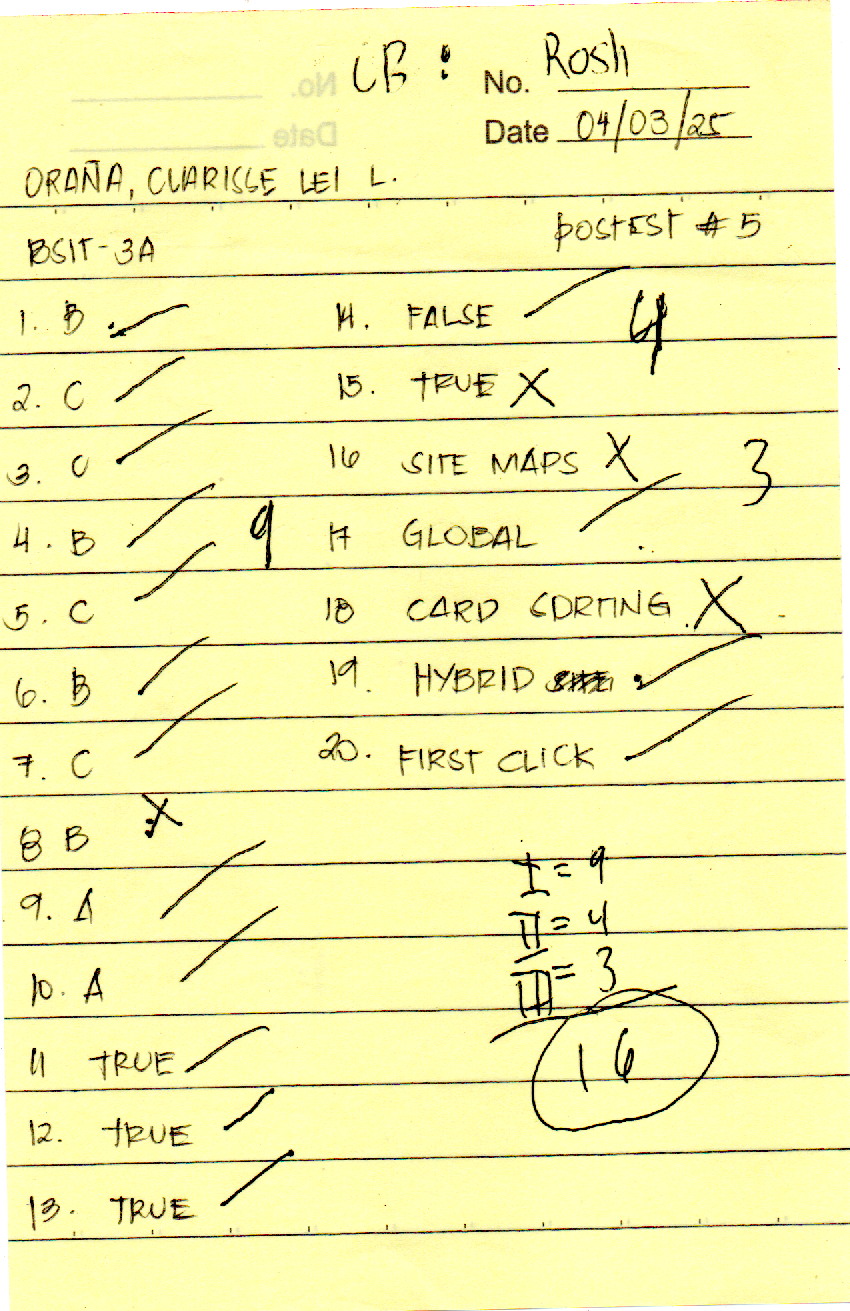 CB : No. Rosh
Date 04/03/25
ORAÑA, CLARISSE LEI L.
BSIT-3A
POSTEST # 5
1. B
2. C
3. C
4. B
9
5. C
6. B
7. C
8 B
9. A
10. A
11 TRUE
12. TRUE
13. TRUE
14. FALSE
4
15. TRUE X
16 SITE MAPS X
3
17 GLOBAL
18 CARD SORTING X
19. HYBRID
20. FIRST CLICK
I = 9
II = 4
III = 3
16
No.
Date